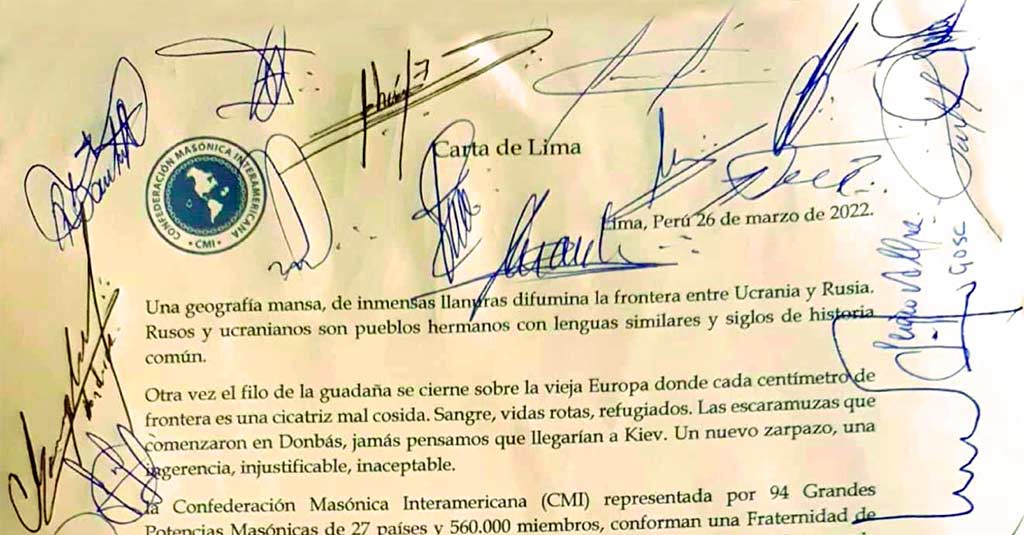 Carta de Lima
CONFEDERACIÓN MASÓNICA INTERAMERICANA
• CMI •
Lima, Perú 26 de marzo de 2022.
GOSC
Una geografía mansa, de inmensas llanuras difumina la frontera entre Ucrania y Rusia.
Rusos y ucranianos son pueblos hermanos con lenguas similares y siglos de historia
común.
Otra vez el filo de la guadaña se cierne sobre la vieja Europa donde cada centímetro de
frontera es una cicatriz mal cosida. Sangre, vidas rotas, refugiados. Las escaramuzas que
comenzaron en Donbás, jamás pensamos que llegarían a Kiev. Un nuevo zarpazo, una
ingerencia, injustificable, inaceptable.
la Confederación Masónica Interamericana (CMI) representada por 94 Grandes
Potencias Masónicas de 27 países y 560.000 miembros, conforman una Fraternidad de